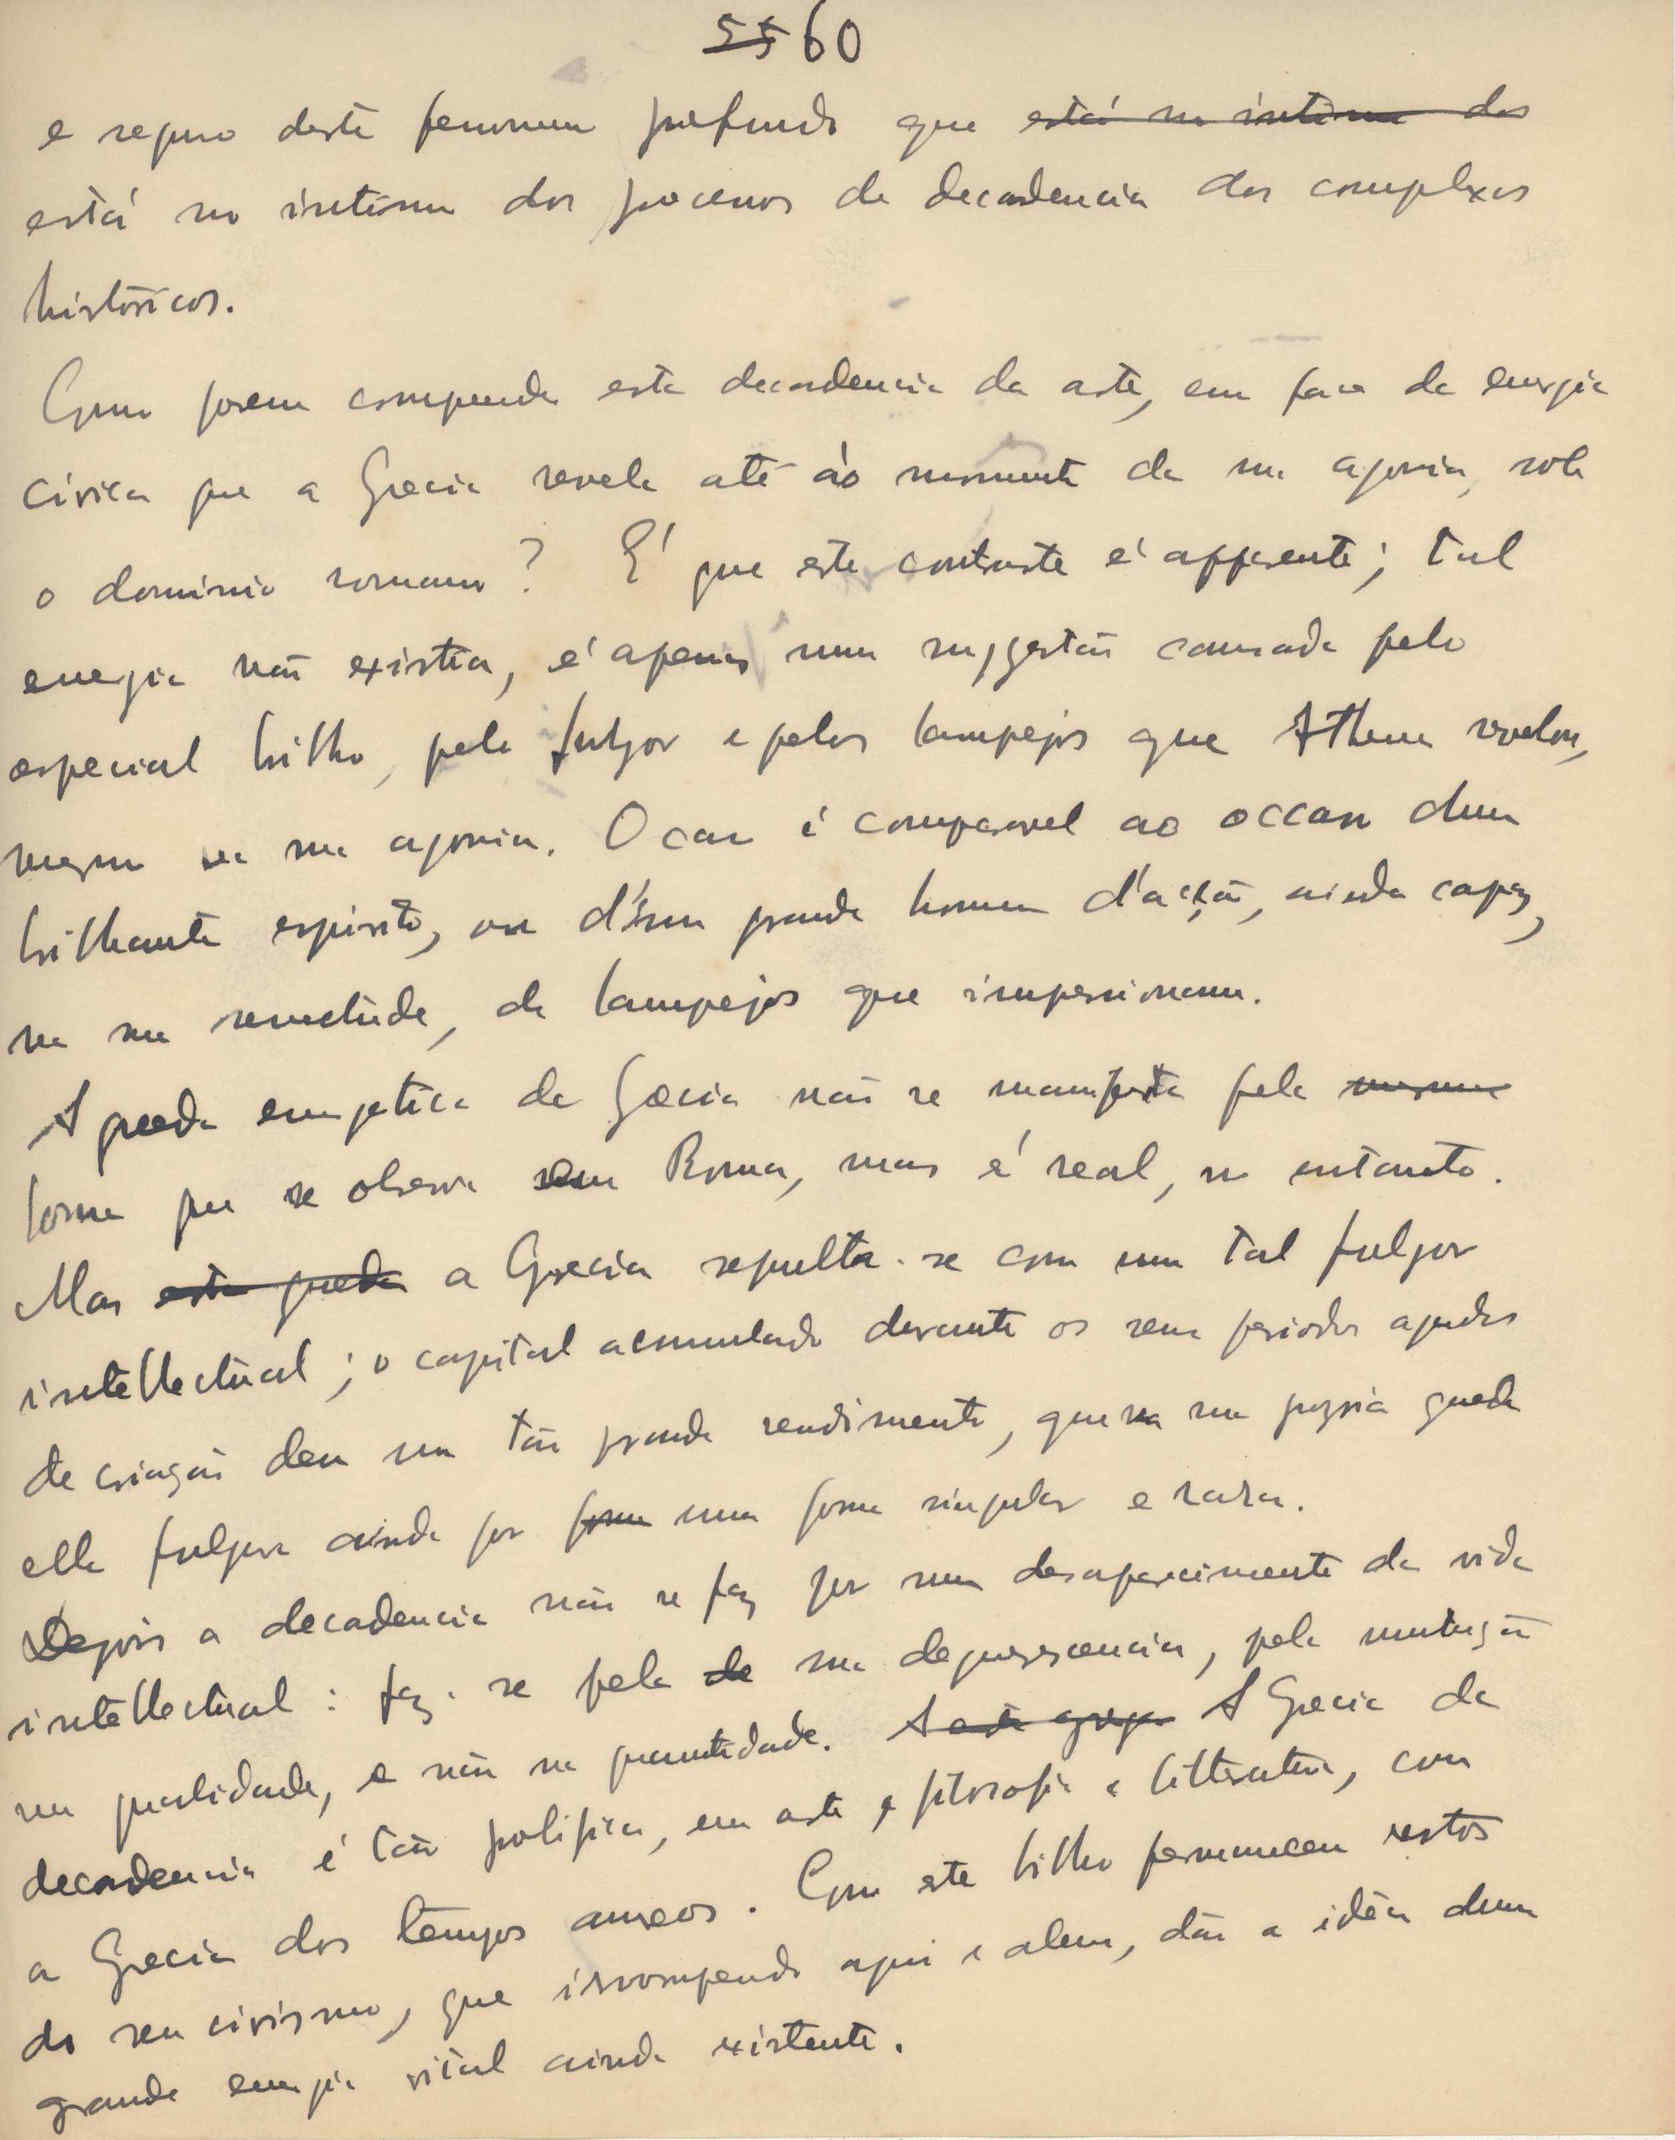 55 60
e seguro deste fenomeno profundo que está no intimo dos
está no intimo dos processos de decadencia dos complexos
históricos.
Como porem comprender esta decadencia da arte, em face da energia
civica que a Grecia revela até ao momento da sua agonia, sob
o dominio romano? É que este contraste é apparente; tal
energia não existia, é apenas uma suggestão causada pelo
especial brilho, pelo fulgor e pelos lampejos que Athenas revelou,
mesmo na sua agonia. O caso é comparavel ao occaso dum
brilhante espirito, ou d'um grande homem d'acção, ainda capaz,
na sua senectude, de lampejos que impressionam.
A queda energetica da Grecia não se manifesta pela mesma
forma que se observa em Roma, mas é real, no entanto.
Mas esta queda a Grecia sepulta-se com um tal fulgor
intellectual; o capital acumulado durante os seus periodos agudos
de criação deu um tão grande rendimento, que na sua propria queda
ella fulgura ainda por forma uma forma singular e rara.
Depois a decadencia não se faz por um desaparecimento da vida
intellectual: faz-se pela de sua degenerescencia, pela mutação
na qualidade, e não na quantidade. A arte grega A Grecia da
decadencia é tão prolifica, em arte, filosofia e litteratura, como
a Grecia dos tempos aureos. Com este brilho permanecem restos
do seu civismo, que irrompendo aqui e alem, dão a idéa duma
grande energia vital ainda existente.